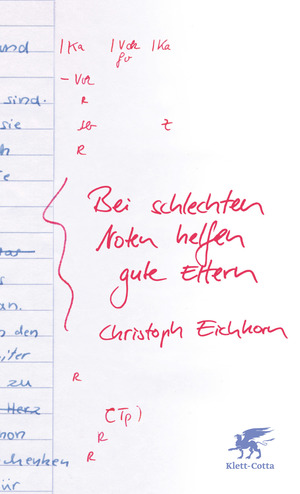 und |Ka |Vok |Ka
gr
– Vok
sind. R
sie z
R
Bei schlechten
Noten helfen
gute Eltern
an.
Christoph Eichhorn
den
zu R
Herz (Tp)
R
R
Klett-Cotta
für